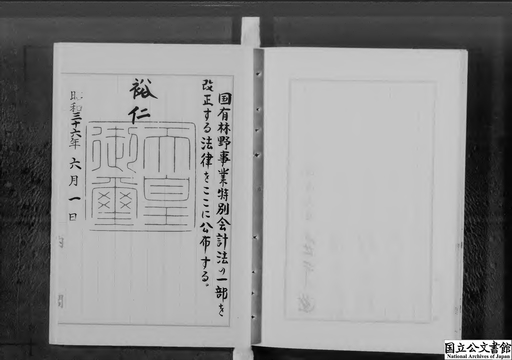 国有林野事業特別会計法の一部を
改正する法律をここに公布する。
裕仁
天皇御璽
昭和三十六年六月一日
国立公文書館
National Archives of Japan